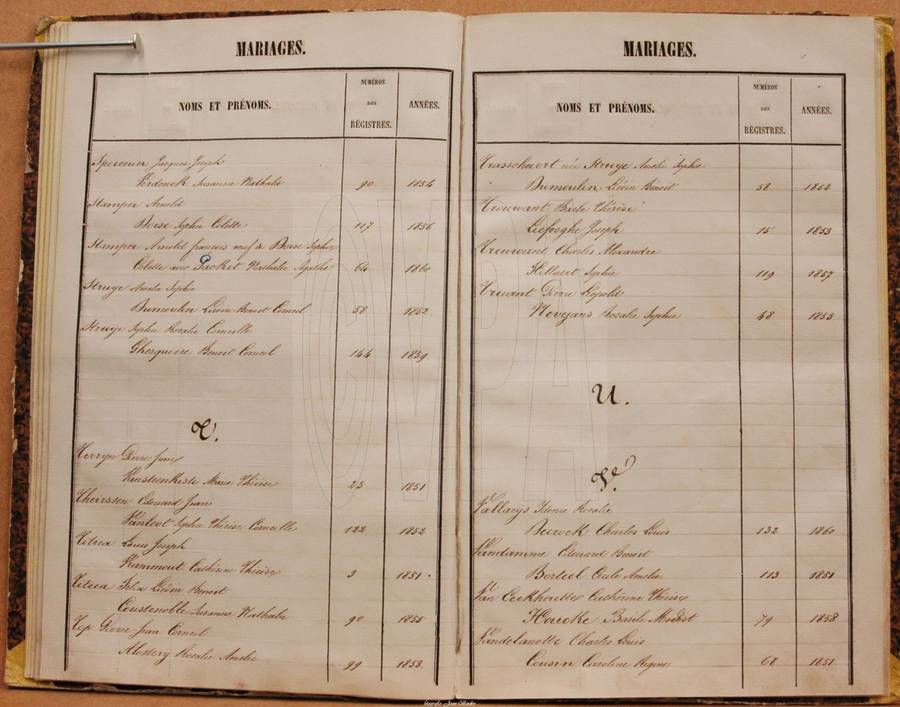 MARIAGES.
NOMS ET PRÉNOMS.
NUMÉROS
DES
RÉGISTRES.
ANNÉES.
Jacques Joseph
Susanne Nathalie 90 1854
Stamper Arnold
Boise Sophie Colette 117 1856
Stamper Arnold francois veuf de Boise Sophie
Colette avec Packet Nathalie Agathe 64 1860
Struye Amelie Sophie
Dumoulin Livin Benoit Corneil 58 1852
Struye Sophie Rosalie Corneille
Ghesquiere Benoit Corneil 144 1859
T.
Terryn Pierre Jean
Vansteenkiste Marie Thérèse 23 1851
Edouard Jean
Sophie Thérèse Corneille 122 1852
Louis Joseph
Rammout Cathérine Thérèse 3 1851
Felix Livin Benoit
Coustenoble Susanne Nathalie 90 1855
Top Pierre Jean Corneil
Rosalie Amelie 99 1858
MARIAGES.
NOMS ET PRÉNOMS.
NUMÉROS
DES
RÉGISTRES.
ANNÉES.
Trassehaert née Struye Amelie Sophie
Dumoulin Livin Benoit 58 1852
Barbe Thérèse
Liefooghe Joseph 15 1853
Charles Alexandre
Hellaert Sophie 119 1857
Pierre Léopold
Neveyans Rosalie Sophie 48 1853
U.
V.
Vallaeys Rosalie
Becuck Charles Louis 132 1860
Vandamme Edouard Benoit
Berteel Cecile Amelie 113 1851
Van Eeckhoutte Cathérine Thérèse
Houcke Basile Modest 79 1858
Vandelanotte Charles Louis
Cousin Caroline Regine 68 1851